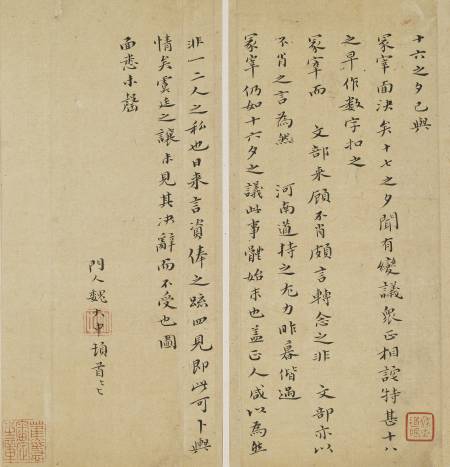 十六之夕已與
冢宰面決矣十七之夕聞有變議眾正相詫特甚十八
之早作數字扣之
冢宰而 文部來顧不肖頗言轉念之非 文部亦以
不肖之言為然 河南道持之尤力昨暮偕過
冢宰仍如十六夕之議此事體始末也蓋正人咸以為然
非一二人之私也日來言資俸之疏四見即此可卜輿
情矣虞廷之讓未見其決辭而不受也圖
面悉未罄
門人魏大中頓首